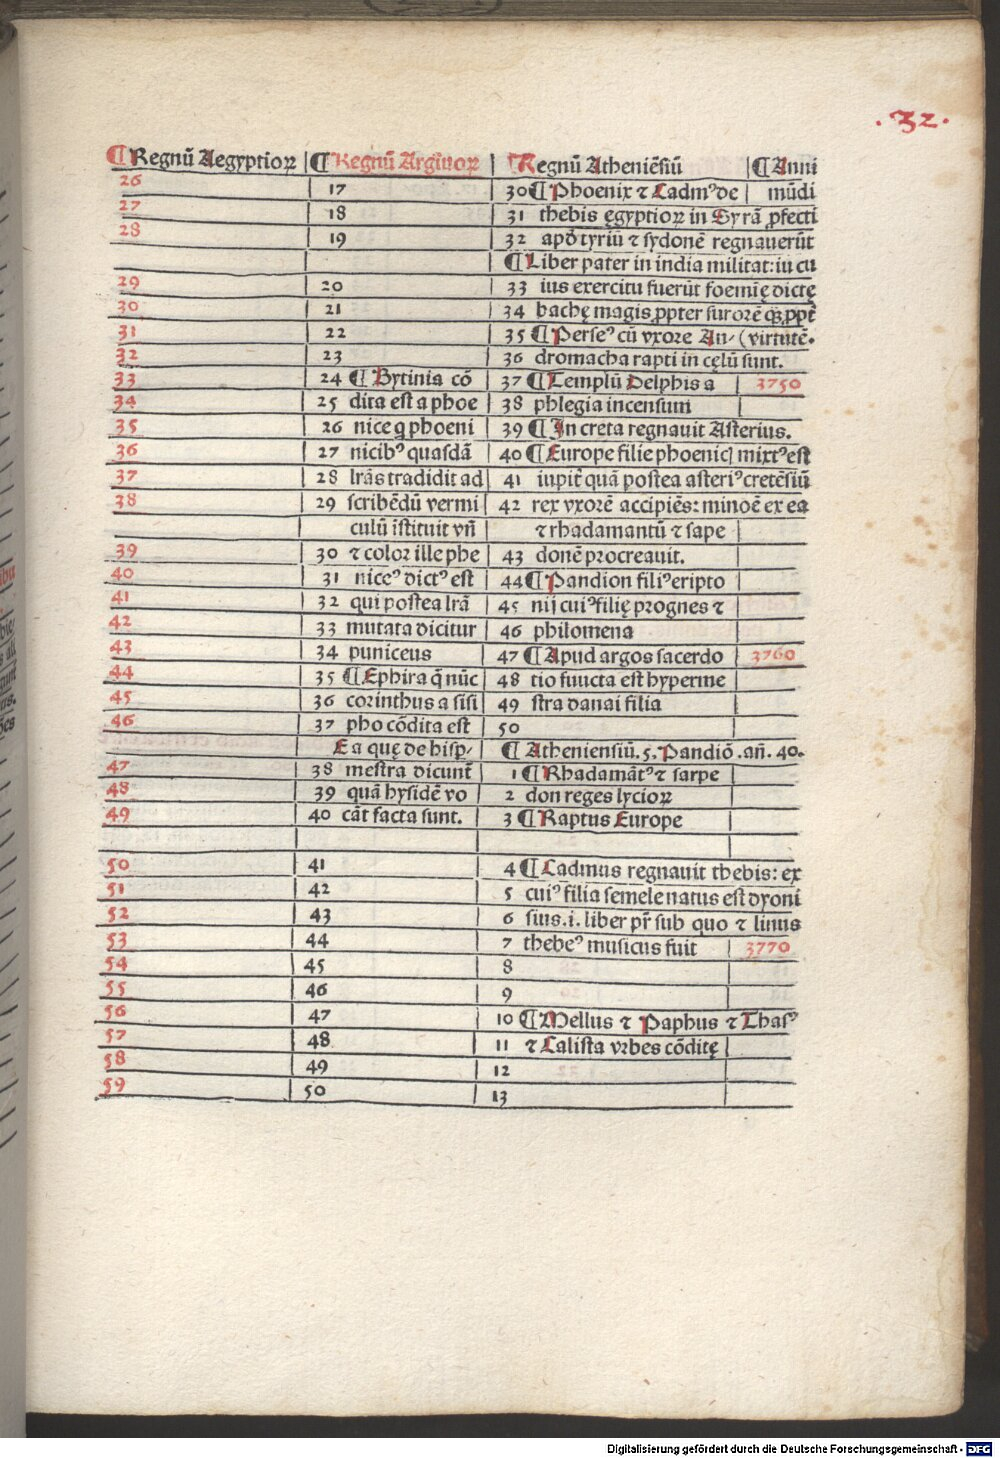 .32.
¶ Regnū Aegyptioꝝ ¶ Regnū Argiuoꝝ Regnū Atheniēsiū ¶ Anni
26 17 30 ¶ Phoenix ⁊ Cadmꝰ de mūdi
27 18 31 thebis ęgyptioꝝ in Syrā ꝓfecti
28 19 32 apd̄ tyriū ⁊ sydonē regnauerūt
¶ Liber pater in india militat: in cu
29 20 33 ius exercitu fuerūt foemię dictę
30 21 34 bachę magis ꝓpter furorē qꝫ ꝓpt̄
31 22 35 ¶ Perseꝰ cū vxore An- (virtutē.
32 23 36 dromacha rapti in cęlū sunt.
33 24 ¶ Bytinia cō 37 ¶ Templū Delphis a 3750
34 25 dita est a phoe 38 phlegia incensum
35 26 nice q phoeni 39 ¶ In creta regnauit Asterius.
36 27 nicibꝰ quasdā 40 ¶ Europe filie phoenicꝭ mixtꝰ est
37 28 lrās tradidit ad 41 iupit̄ quā postea asteriꝰ cretēsiū
38 29 scribēdū vermi 42 rex vxorē accipiēs: minoē ex ea
culū īstituit vñ ⁊ rhadamantū ⁊ sape
39 30 ⁊ color ille phe 43 donē procreauit.
40 31 niceꝰ dictꝰ est 44 ¶ Pandion filiꝰ eripto
41 32 qui postea lrā 45 nij cuiꝰ filię prognes ⁊
42 33 mutata dicitur 46 philomena
43 34 puniceus 47 ¶ Apud argos sacerdo 3760
44 35 ¶ Ephira q̄ nūc 48 tio functa est hyperme
45 36 corinthus a sisi 49 stra danai filia
46 37 pho cōdita est 50
Ea quę de hisp- ¶ Atheniensiū.5. Pandiō.añ.40.
47 38 mestra dicunt̄ 1 ¶ Rhadamātꝰ ⁊ sarpe
48 39 quā hysidē vo 2 don reges lycioꝝ
49 40 cāt facta sunt. 3 ¶ Raptus Europe
50 41 4 ¶ Cadmus regnauit thebis: ex
51 42 5 cuiꝰ filia semele natus est dyoni
52 43 6 sius.i. liber pr̄ sub quo ⁊ linus
53 44 7 thebeꝰ musicus fuit 3770
54 45 8
55 46 9
56 47 10 ¶ Mellus ⁊ Paphus ⁊ Thasꝰ
57 48 11 ⁊ Calista vrbes cōditę
58 49 12
59 50 13
Digitalisierung gefördert durch die Deutsche Forschungsgemeinschaft - DFG